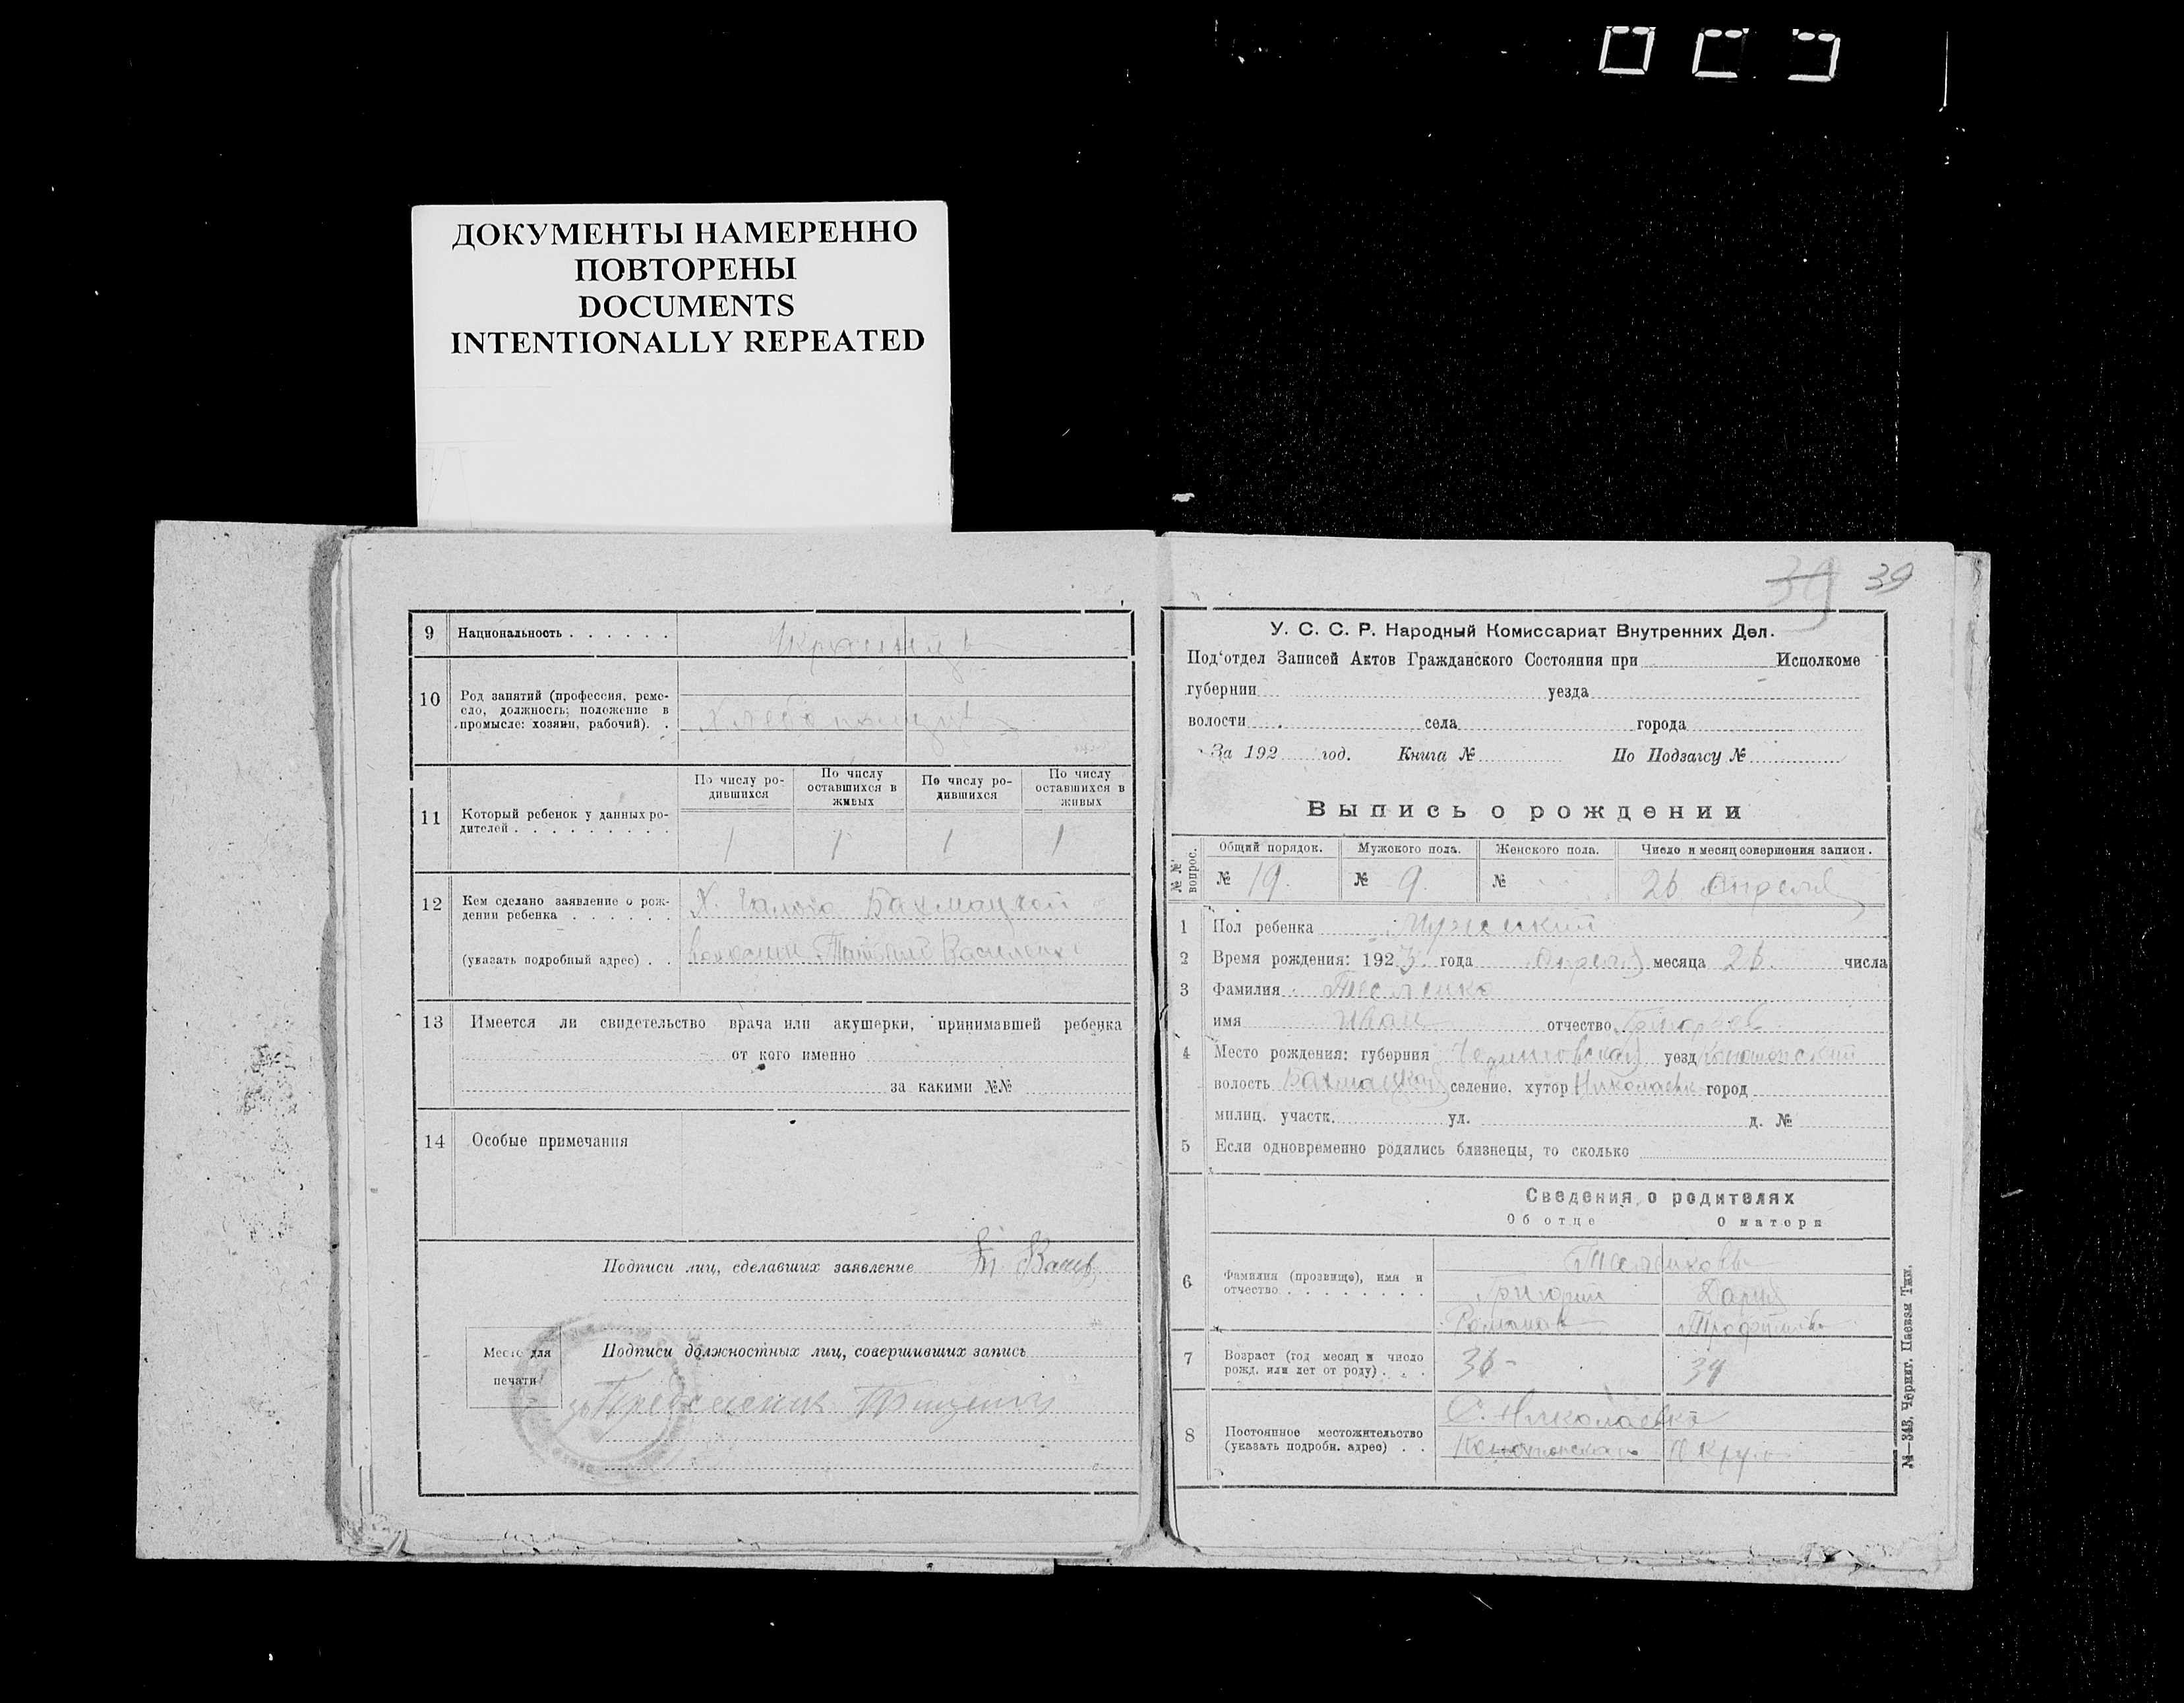 ДОКУМЕНТЫ НАМЕРЕННО
ПОВТОРЕНЫ
DOCUMENTS
INTENTIONALLY REPEATED
9 Национальность . . . . . . Украинцы
10 Род занятий (профессия, реме-
сло, должность; положение в
промысле: хозяин, рабочий). .
11 Который ребенок у данных ро-
дителей . . . . . . . . .
По числу ро-
дившихся
По числу
оставшихся в
живых
По числу ро-
дившихся
По числу
оставшихся в
живых
1 1 1 1
12 Кем сделано заявление о рож-
дении ребенка . . . . . . Х. Бахмацкой
(указать подробный адрес) . .
13 Имеется ли свидетельство врача или акушерки, принимавшей ребенка
от кого именно
за какими №№
14 Особые примечания
Подписи лиц, сделавших заявление
Место для
печати
Подписи должностных лиц, совершивших запись
39 39
У. С. С. Р. Народный Комиссариат Внутренних Дел.
Под'отдел Записей Актов Гражданского Состояния при Исполкоме
губернии уезда
волости села города
За 192 год. Книга № По Подзагсу №
Выпись о рождении
№№ вопрос.
Общий порядок. Мужского пола. Женского пола. Число и месяц совершения записи.
№ 19. № 9. № 26 Апреля
1 Пол ребенка Мужеский
2 Время рождения: 1923 года Апреля месяца 26. числа
3 Фамилия
имя Иван отчество Григорьев
4 Место рождения: губерния Черниговская уезд Конотопский
волость Бахмацкая селение, хутор Николаевк город
милиц. участк. ул. д. №
5 Если одновременно родились близнецы, то сколько
Сведения о родителях
Об отце О матери
6 Фамилия (прозвище), имя и
отчество . . . . . . . .
Григорий Дария
Романов Трофимова
7 Возраст (год месяц и число
рожд. или лет от роду) . . . 36 34
8 Постоянное местожительство
(указать подробн. адрес) . .
С. Николаевка
Конотопского Округа
№—343. Черниг. Паевая Тип.